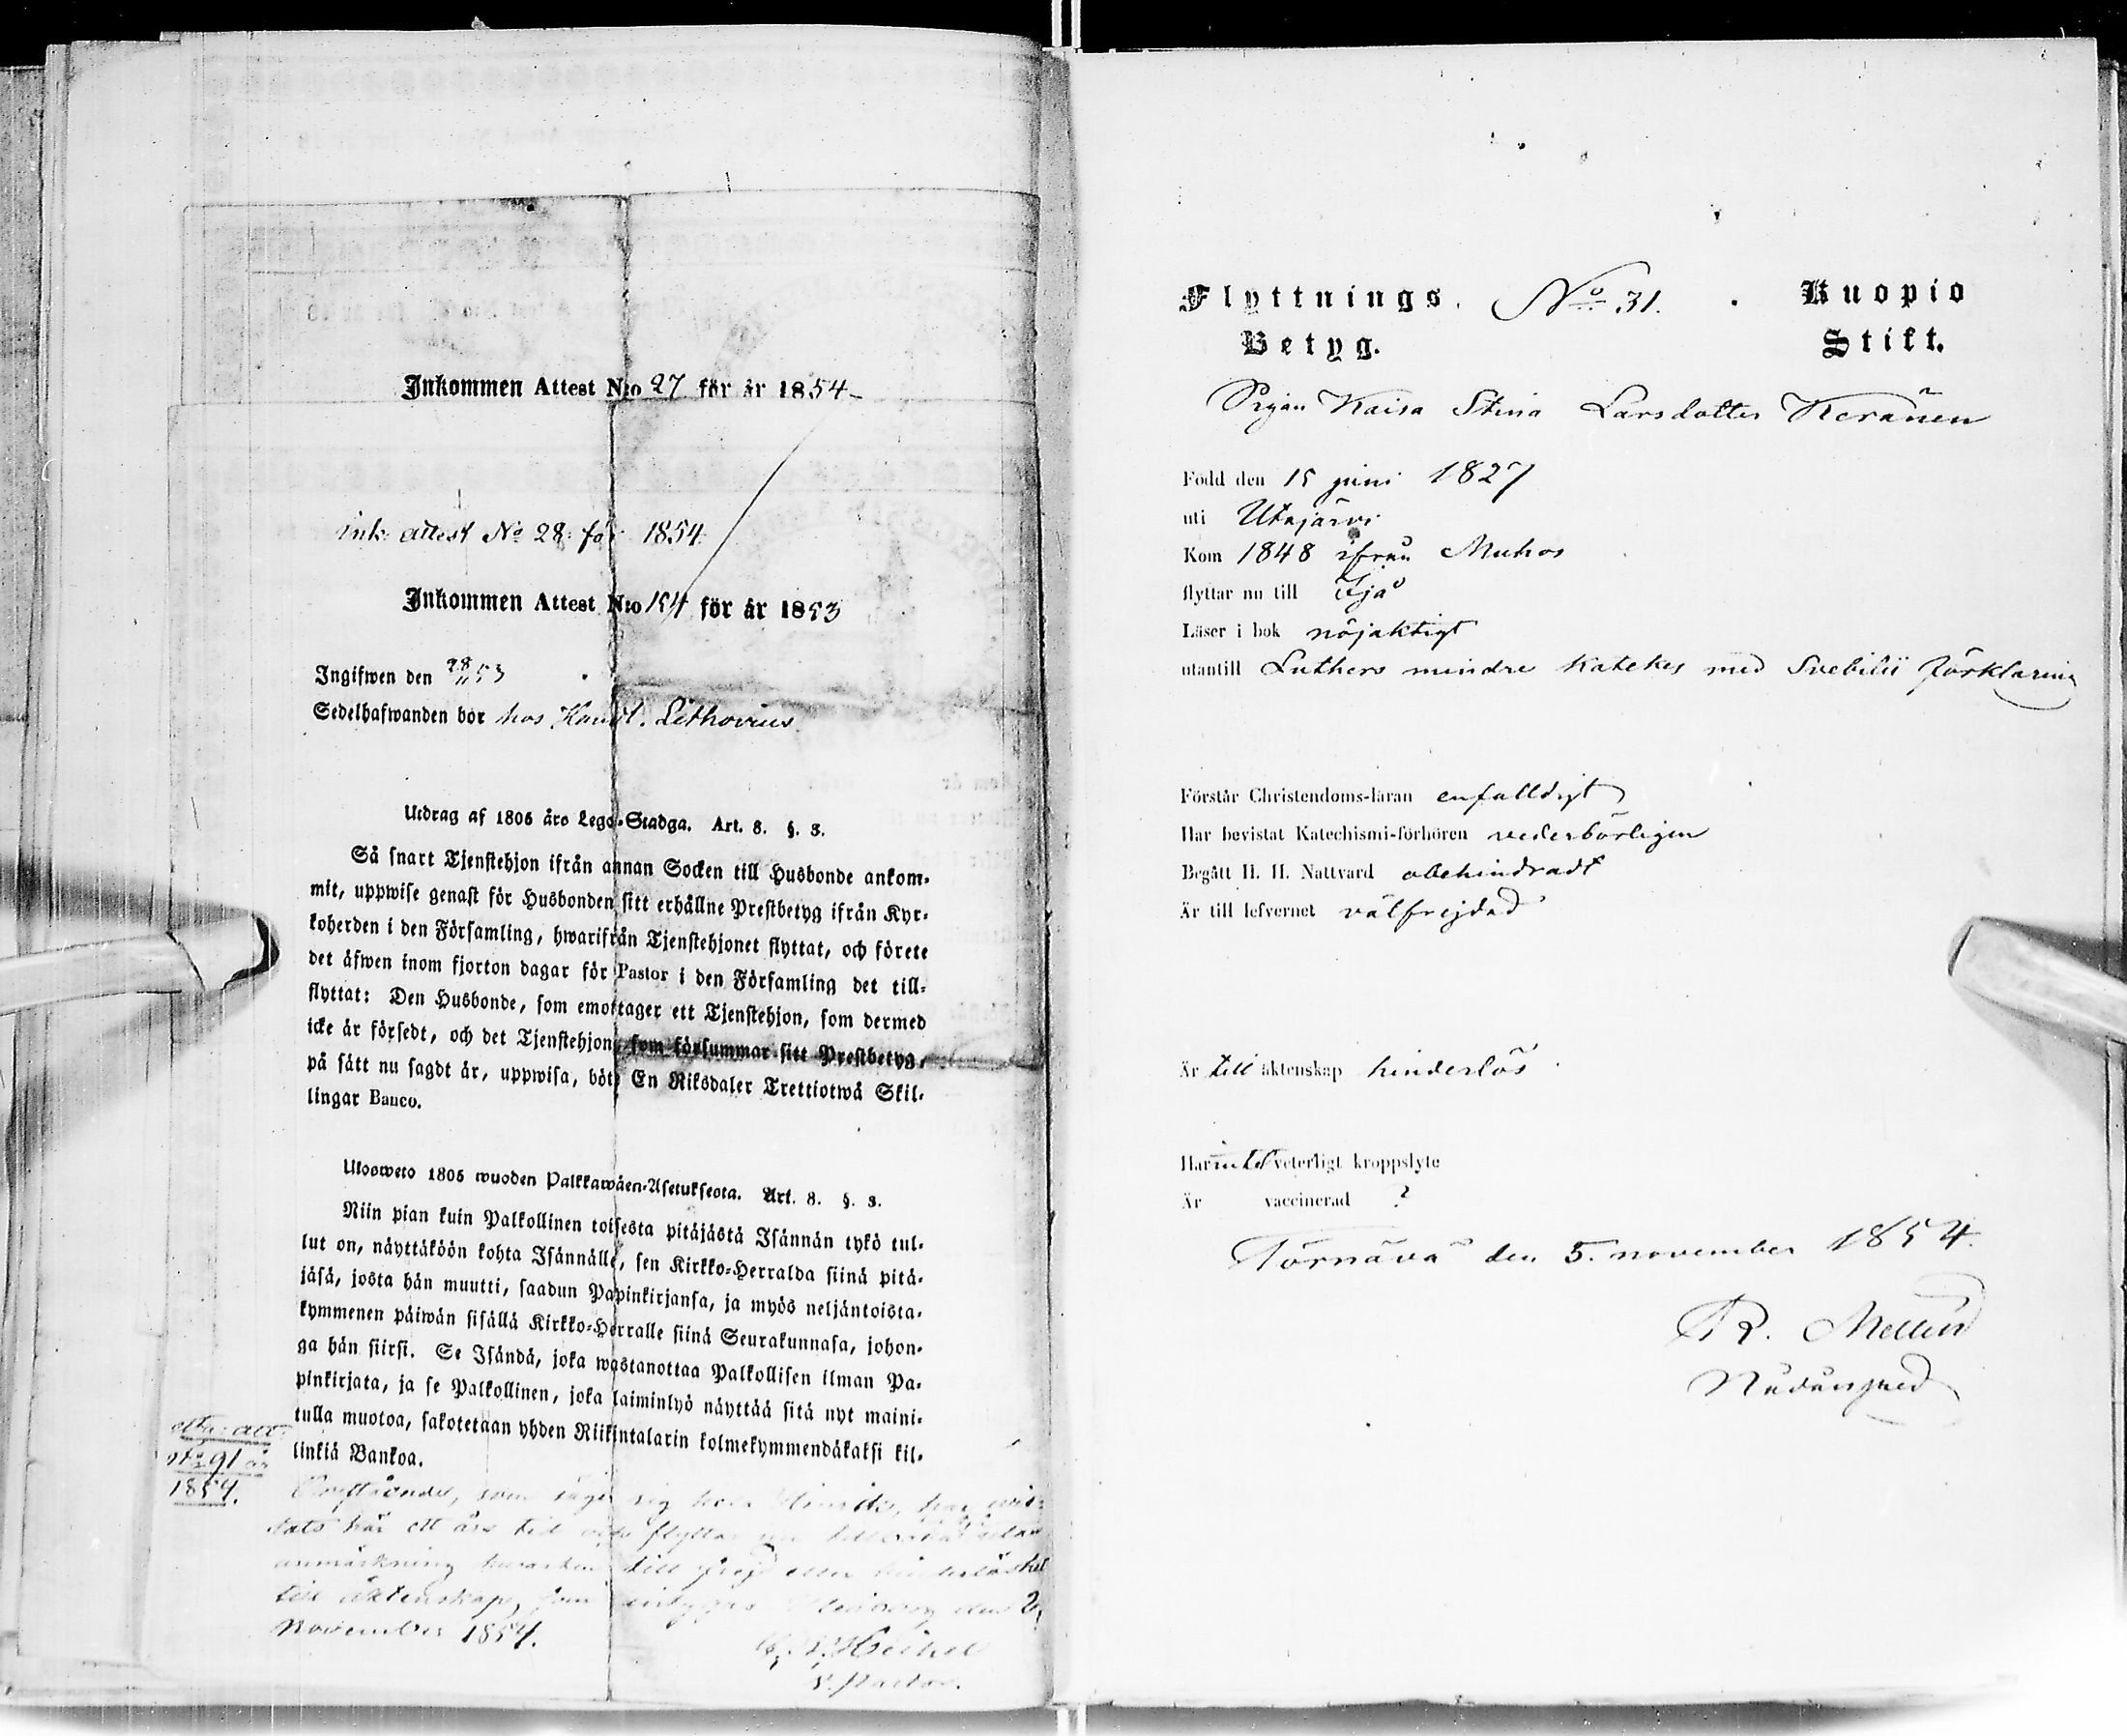 Inkommen Attest N:o 27 för år 1854
ink. attest No 28. för 1854.
Inkommen Attest N:o 154 för år 1853
Ingifwen den 28/11 53
Sedelhafwanden bor hos Handl. Lithovius.
Utdrag af 1805 års Lego-Stadga. Art. 8. §. 3.
Så snart Tjenstehjon ifrån annan Socken till Husbonde ankom-
mit, uppwise genast för Husbonden sitt erhållne Prestbetyg ifrån Kyr-
koherden i den Församling, hwarifrån Tjenstehjonet flyttat, och förete
det äfwen inom fjorton dagar för Pastor i den Församling det till-
flyttat: Den Husbonde, som emottager ett Tjenstehjon, som dermed
icke är försedt, och det Tjenstehjon, som försummar sitt Prestbetyg,
på sätt nu sagdt är, uppwisa, böte En Riksdaler Trettiotwå Skil-
lingar Banco.
Ulosweto 1805 wuoden Palkkawäen-Asetuksesta. Art. 8. §. 3.
Niin pian kuin Palkollinen toisesta pitäjästä Isännän tykö tul-
lut on, näyttäköön kohta Isännälle, sen Kirkko-Herralda siinä pitä-
jäsä, josta hän muutti, saadun Papinkirjansa, ja myös neljäntoista-
kymmenen päiwän sisällä Kirkko-Herralle siinä Seurakunnasa, johon-
ga hän siirsi. Se Isändä, joka wastanottaa Palkollisen ilman Pa-
pinkirjata, ja se Palkollinen, joka laiminlyö näyttää sitä nyt maini-
tulla muotoa, sakotetaan yhden Riikintalarin kolmekymmendäkaksi kil-
linkiä Bankoa.
att.
No 91
1854.
som säger sig
tats här ett års tid och flyttar nu till utan
anmärkning hwarken till frejd eller
till äktenskap, som intygas den 2
November 1854.
Heikel
Pastor.
Flyttnings No 31. Kuopio
Betyg. Stift.
Pigan Kaisa Stina Larsdotter Keränen
Född den 15 juni 1827
uti Utajärvi
Kom 1848 ifrån Muhos
flyttar nu till Ijå
Läser i bok nöjaktigt
utantill Luthers mindre katekes med Svebilii förklaring
Förstår Christendoms-läran enfalldigt
Har bevistat Katechismi-förhören vederbörligen
Begått H. H. Nattvard obehindradt
Är till lefvernet välfrejdad
Är till äktenskap hinderlös
Har intet veterligt kroppslyte
Är vaccinerad ?
Törnävä den 5. november 1854.
R. Mellin